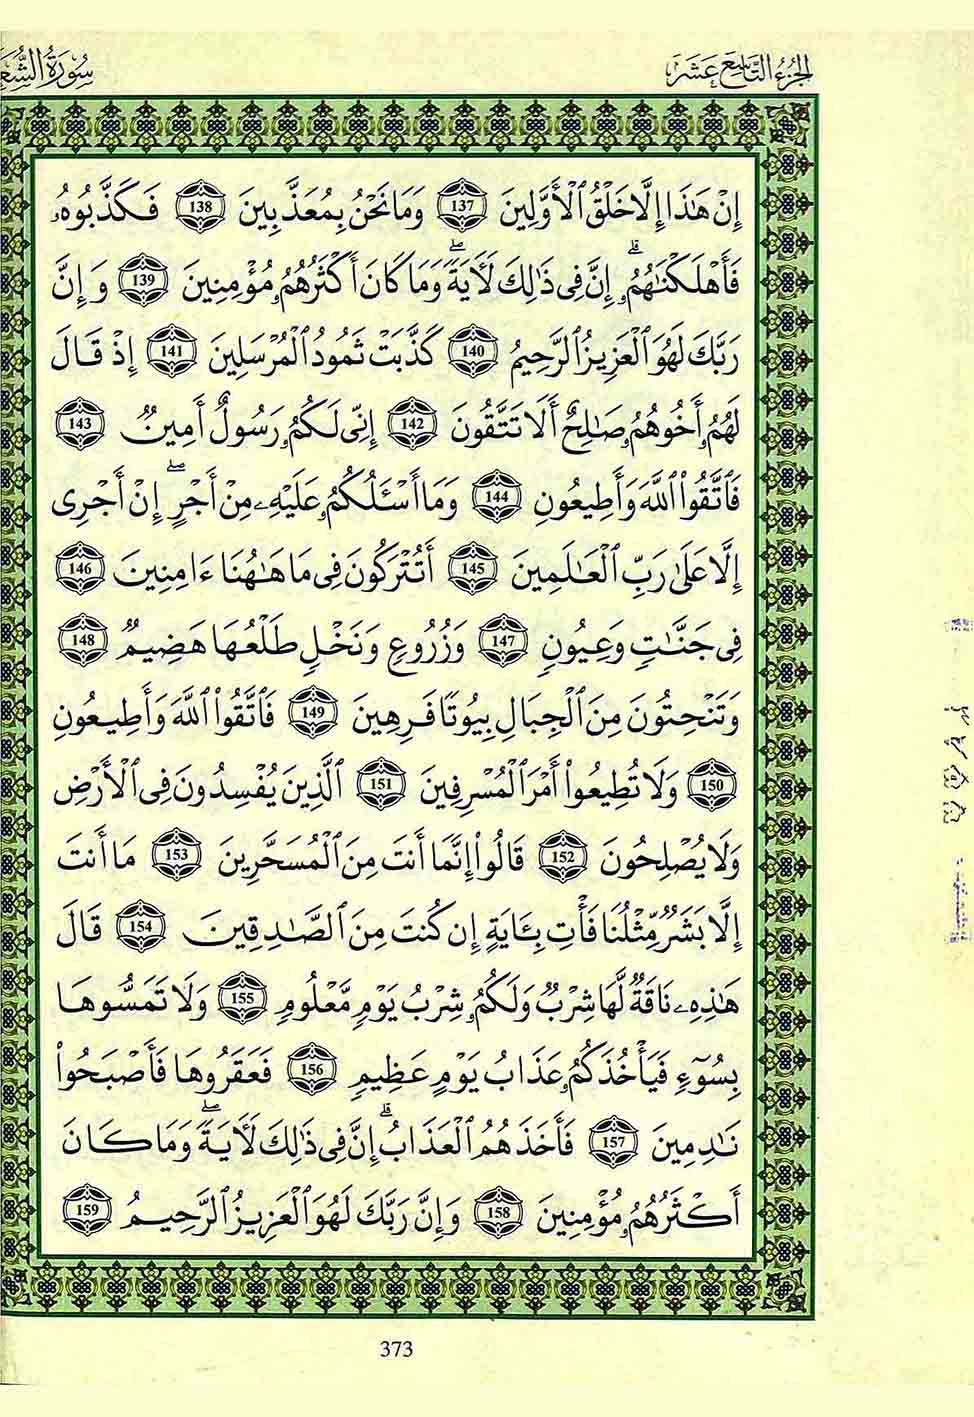 الجزء التاسع عشر
سورة الشع
إِنْ هَٰذَا إِلَّا خَلْقُ ٱلْأَوَّلِينَ 137 وَمَا نَحْنُ بِمُعَذَّبِينَ 138 فَكَذَّبُوهُ
فَأَهْلَكْنَٰهُمُۥٓۗ إِنَّ فِى ذَٰلِكَ لَأٓيَةًۖ وَمَا كَانَ أَكْثَرُهُمُۥ مُؤْمِنِينَ 139 وَإِنَّ
رَبَّكَ لَهُوَ ٱلْعَزِيزُ ٱلرَّحِيمُ 140 كَذَّبَتْ ثَمُودُ ٱلْمُرْسَلِينَ 141 إِذْ قَالَ
لَهُمُۥٓ أَخُوهُمُۥ صَٰلِحٌ أَلَا تَتَّقُونَ 142 إِنِّى لَكُمُۥ رَسُولٌ أَمِينٌ 143
فَٱتَّقُوا۟ ٱللَّهَ وَأَطِيعُونِ 144 وَمَا أَسْـَٔلُكُمُۥ عَلَيْهِۦ مِنْ أَجْرٍۖ إِنْ أَجْرِى
إِلَّا عَلَىٰ رَبِّ ٱلْعَٰلَمِينَ 145 أَتُتْرَكُونَ فِى مَا هَٰهُنَا ءَامِنِينَ 146
فِى جَنَّٰتٍ وَعِيُونٍ 147 وَزُرُوعٍ وَنَخْلٍ طَلْعُهَا هَضِيمٌ 148
وَتَنْحِتُونَ مِنَ ٱلْجِبَالِ بِيُوتًا فَرِهِينَ 149 فَٱتَّقُوا۟ ٱللَّهَ وَأَطِيعُونِ
150 وَلَا تُطِيعُوا۟ أَمْرَ ٱلْمُسْرِفِينَ 151 ٱلَّذِينَ يُفْسِدُونَ فِى ٱلْأَرْضِ
وَلَا يُصْلِحُونَ 152 قَالُوا۟ إِنَّمَا أَنتَ مِنَ ٱلْمُسَحَّرِينَ 153 مَا أَنتَ
إِلَّا بَشَرٌ مِّثْلُنَا فَأْتِ بِـَٔايَةٍ إِن كُنتَ مِنَ ٱلصَّٰدِقِينَ 154 قَالَ
هَٰذِهِۦ نَاقَةٌ لَّهَا شِرْبٌ وَلَكُمُۥ شِرْبُ يَوْمٍ مَّعْلُومٍ 155 وَلَا تَمَسُّوهَا
بِسُوٓءٍ فَيَأْخُذَكُمُۥ عَذَابُ يَوْمٍ عَظِيمٍ 156 فَعَقَرُوهَا فَأَصْبَحُوا۟
نَٰدِمِينَ 157 فَأَخَذَهُمُ ٱلْعَذَابُۗ إِنَّ فِى ذَٰلِكَ لَأٓيَةًۖ وَمَا كَانَ
أَكْثَرُهُمُۥ مُؤْمِنِينَ 158 وَإِنَّ رَبَّكَ لَهُوَ ٱلْعَزِيزُ ٱلرَّحِيمُ 159
373